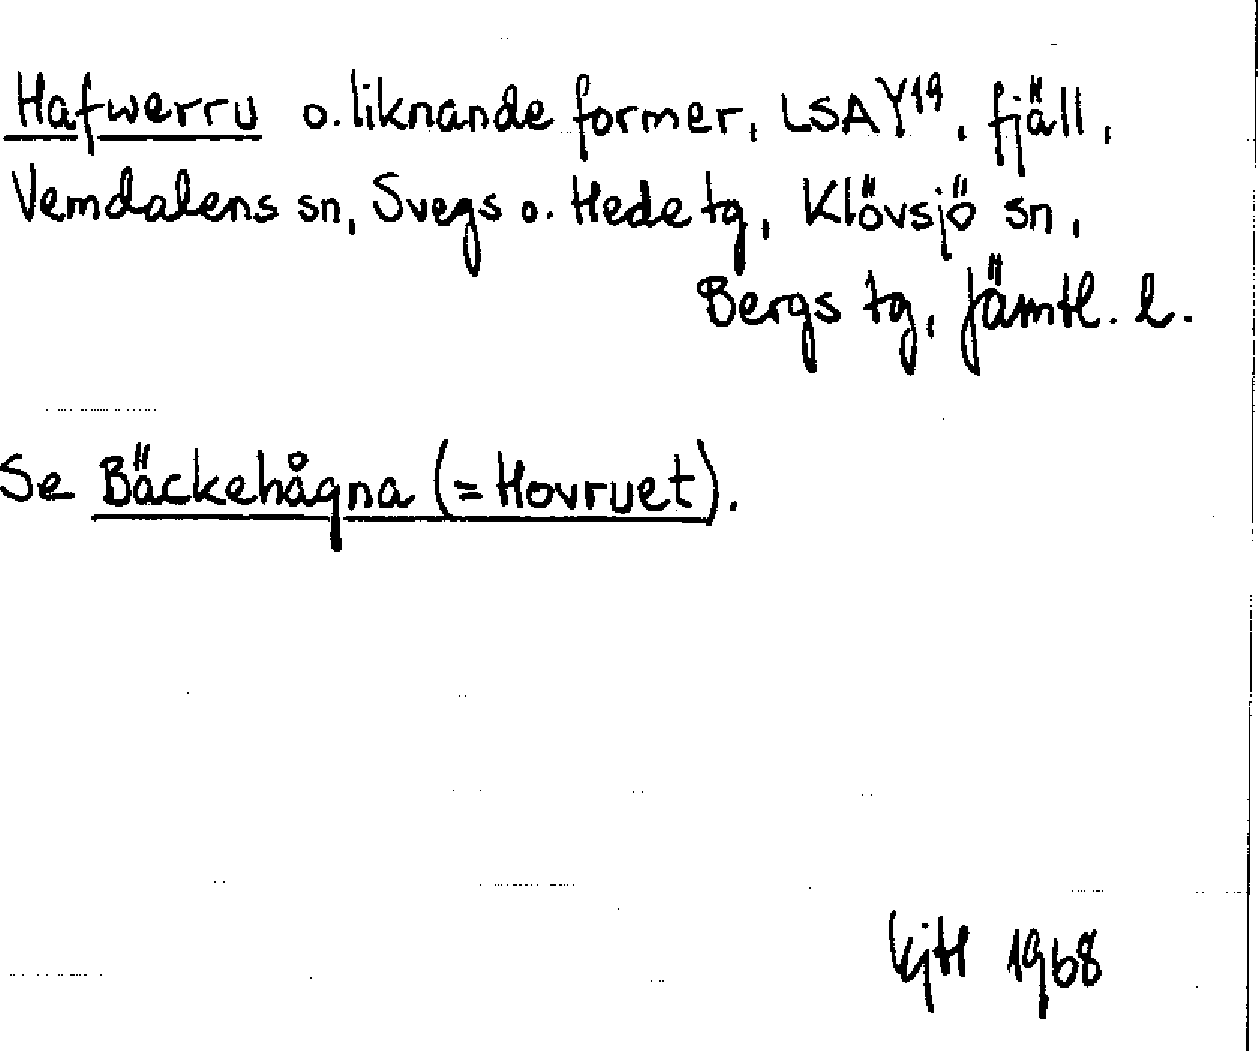 Hafwerru o. liknande former, LSA Y19, fjäll,
Vemdalens sn, Svegs o. Hede tg, Klövsjö sn,
Bergs tg, Jämtl. l.
Se Bäckehågna (= Hovruet).
1968